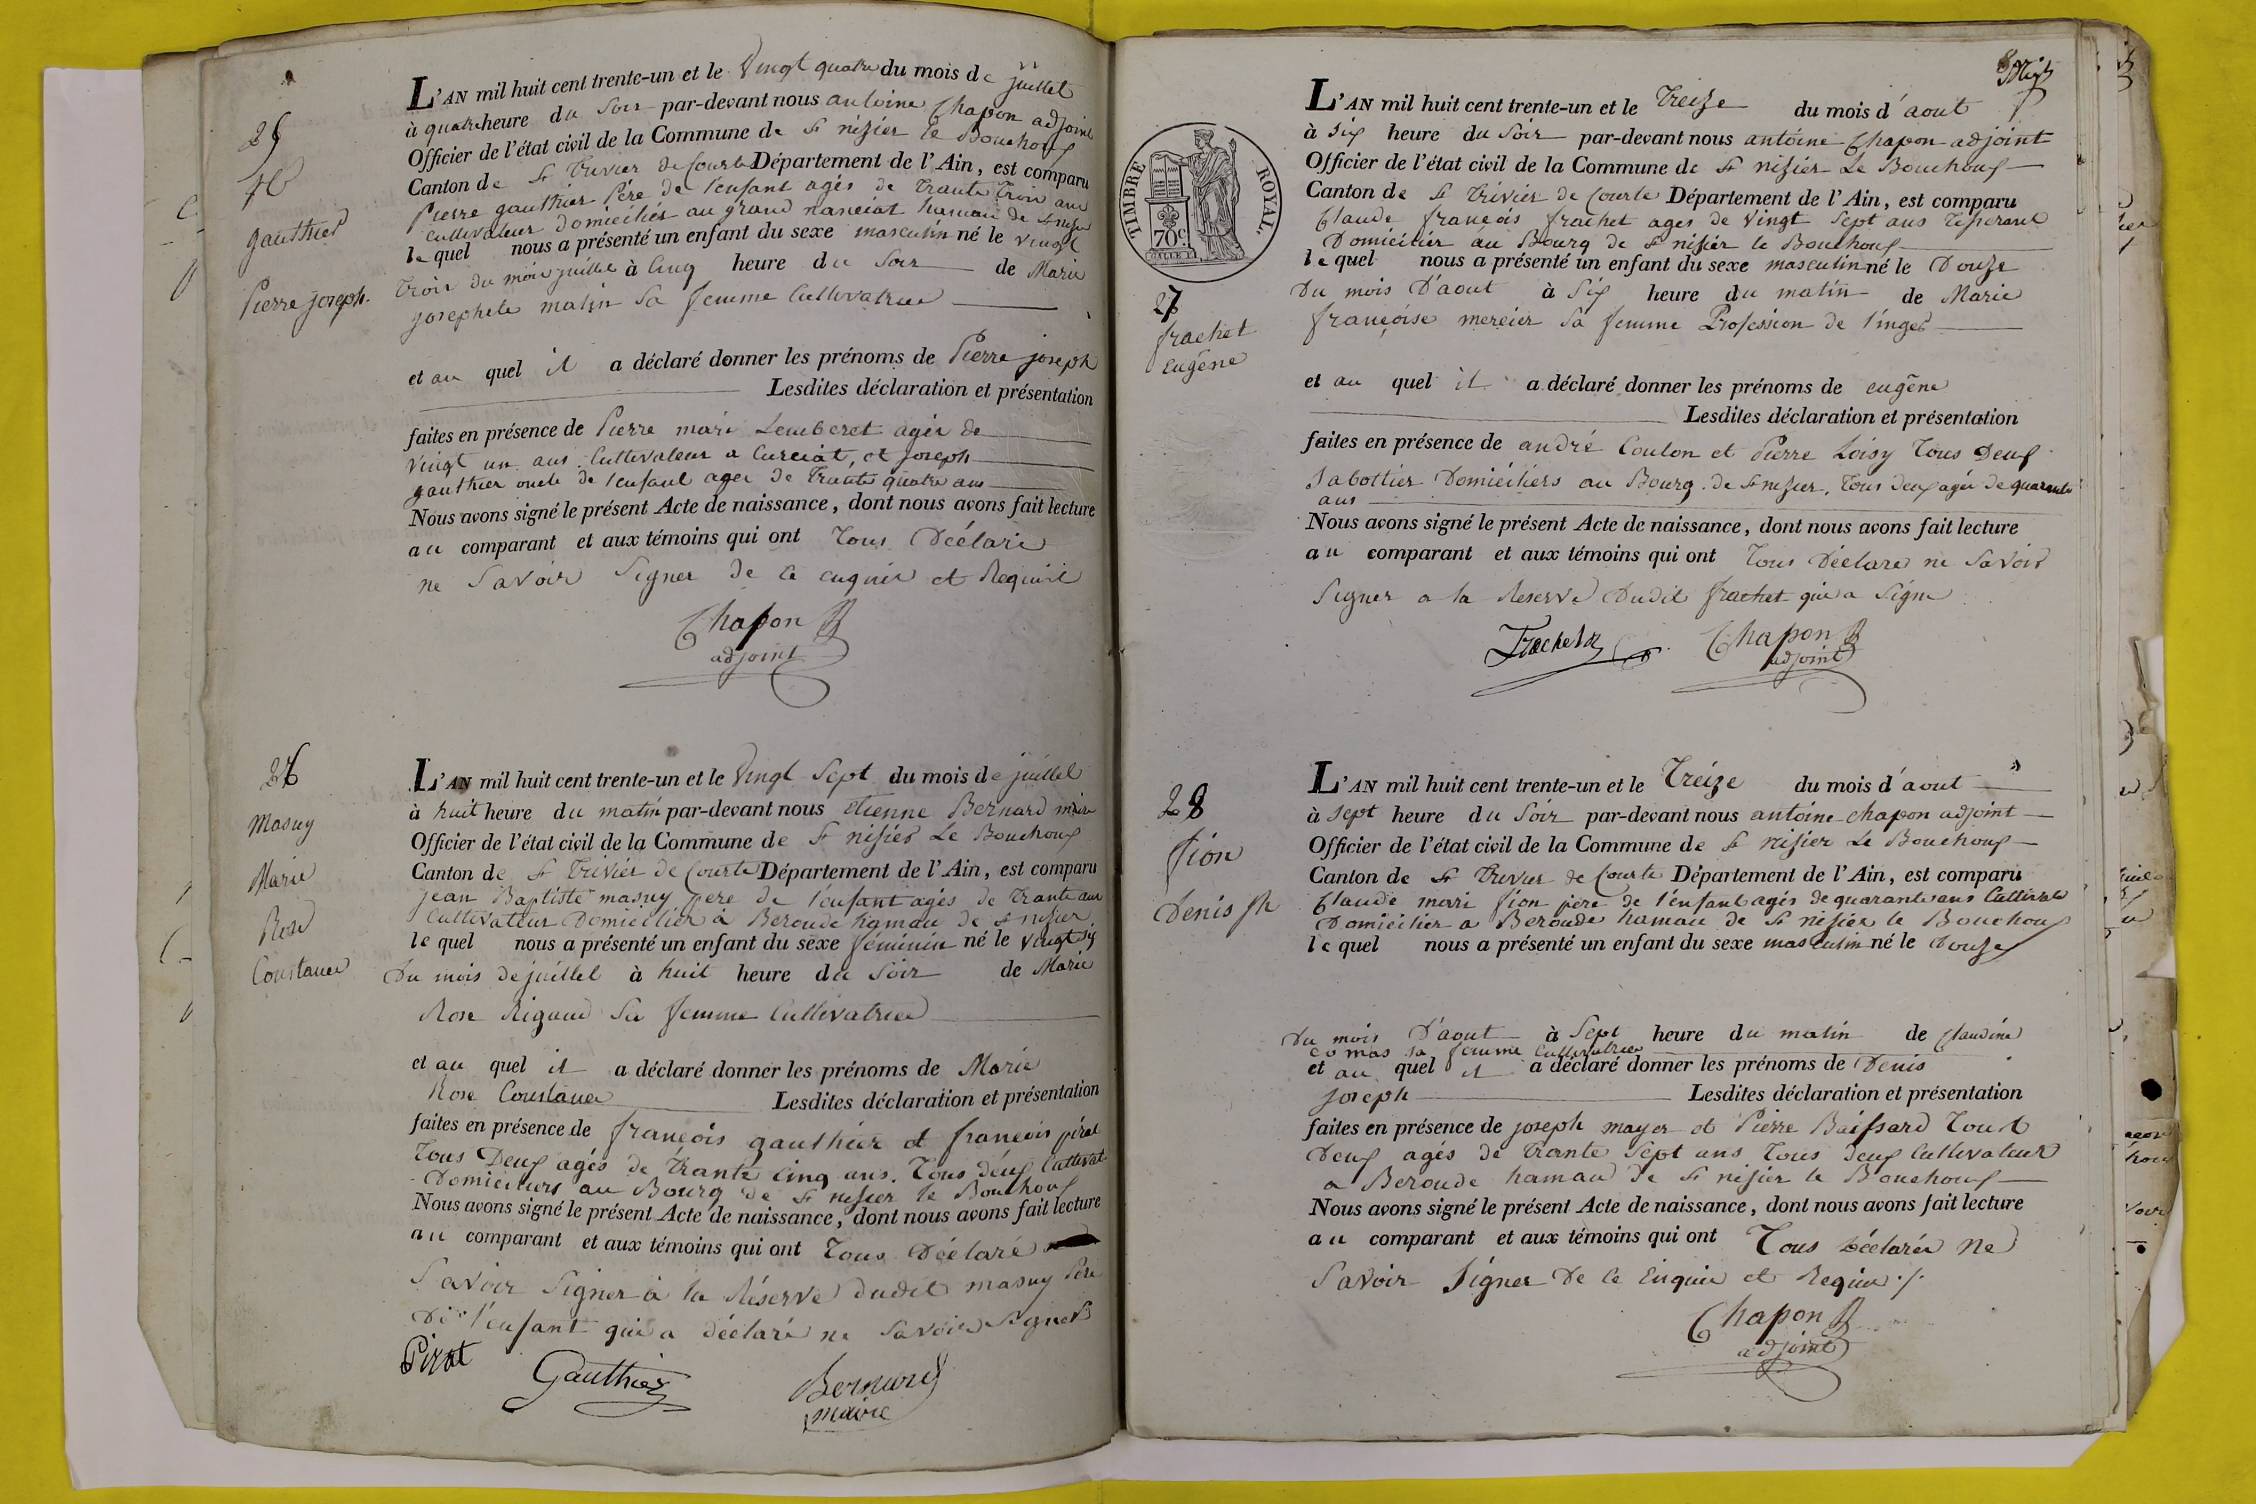 25
gauthier
Pierre joseph.
L'AN mil huit cent trente-un et le Vingt quatre du mois de juillet
à quatre heure du Soir par-devant nous antoine Chapon adjoint
Officier de l'état civil de la Commune de St nizier le Bouchoux
Canton de St Trivier de Courte Département de l'Ain, est comparu
Pierre gauthier Père de l'enfant agés de Trante Trois ans
cultivateur domiciliés au grand nanciat hamau de St nizier
le quel nous a présenté un enfant du sexe masculin né le vingt
Trois du mois juillet à Cinq heure du Soir de Marie
josephete matin Sa femme Cultivatrice
et au quel il a déclaré donner les prénoms de Pierre joseph
Lesdites déclaration et présentation
faites en présence de Pierre mari Lemberet agés de
vingt un ans Cultivateur a Curciat, et joseph
gauthier oncle de l'enfant agés de Trante quatre ans
Nous avons signé le présent Acte de naissance, dont nous avons fait lecture
au comparant et aux témoins qui ont Tous Déclaré
ne Savoir Signer de ce enquis et Requis
Chapon
adjoint
26
Masuy
Marie
Rose
Constance
L'AN mil huit cent trente-un et le Vingt Sept du mois de juillet
à huit heure du matin par-devant nous etienne Bernard maire
Officier de l'état civil de la Commune de St nizier Le Bouchoux
Canton de St Trivier de Courte Département de l'Ain, est comparu
jean Baptiste masuy père de l'enfant agés de Trante ans
Cultivateur Domicilier à Beroude hamau de St nizier
le quel nous a présenté un enfant du sexe féminin né le vingt six
Du mois de juillet à huit heure du Soir de Marie
Rose Rigaud Sa femme Cultivatrice
et au quel il a déclaré donner les prénoms de Marie
Rose Constance Lesdites déclaration et présentation
faites en présence de françois gauthier et françois pirat
Tous Deux agés de Trante Cinq ans. Tous deux Cultivat
Domiciliers au Bourg de St nizier le Bouchoux
Nous avons signé le présent Acte de naissance, dont nous avons fait lecture
au comparant et aux témoins qui ont Tous Déclaré
Savoir Signer à la Réserve dudit masuy Père
De l'enfant qui a déclaré ne Savoir Signer
Pirat Gauthier Bernard
maire
TIMBRE ROYAL.
70c.
L'AN mil huit cent trente-un et le Treize du mois d'aout
à Six heure du Soir par-devant nous antoine Chapon adjoint
Officier de l'état civil de la Commune de St nizier Le Bouchoux
Canton de St Trivier de Courte Département de l'Ain, est comparu
Claude françois frachet ages de Vingt Sept ans Tisserant
Domicilier au Bourg de St nizier le Bouchoux
le quel nous a présenté un enfant du sexe masculin né le Douze
Du mois D'aout à Six heure du matin de Marie
françoise mercier Sa femme Profession de linger
27
frachet
Eugène
et au quel il a déclaré donner les prénoms de eugène
Lesdites déclaration et présentation
faites en présence de andré Coulon et Pierre Loisy Tous Deux
Sabottier Domiciliers au Bourg de St nizier, Tous deux agés de quarante
ans
Nous avons signé le présent Acte de naissance, dont nous avons fait lecture
au comparant et aux témoins qui ont Tous Déclaré ne Savoir
Signer a la Reserve Dudit frachet qui a Signé
Frachet Chapon
adjoint
28
fion
Denis jh
L'AN mil huit cent trente-un et le Treize du mois d'aout
à Sept heure du Soir par-devant nous antoine chapon adjoint
Officier de l'état civil de la Commune de St nizier Le Bouchoux
Canton de St Trivier de Courte Département de l'Ain, est comparu
Claude mari fion père de l'enfant agés de quarante ans Cultivate
Domicilier a Beroude hamau de St nizier le Bouchoux
le quel nous a présenté un enfant du sexe masculin né le Douze
Du mois D'aout à Sept heure du matin de Claudine
comas sa femme Cultivatrice
et au quel il a déclaré donner les prénoms de Denis
joseph Lesdites déclaration et présentation
faites en présence de joseph mayer et Pierre Baissard Tout
Deux agés de Trante Sept ans Tous deux Cultivateur
a Beroude hamau De St nizier le Bouchoux
Nous avons signé le présent Acte de naissance, dont nous avons fait lecture
au comparant et aux témoins qui ont Tous Déclarés Ne
Savoir Signer De Ce Enquis et Requis ./.
Chapon
adjoint